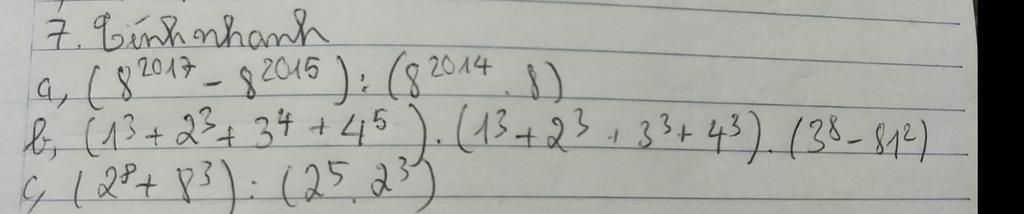 7. Tính nhanh
a, (8²⁰¹⁷ - 8²⁰¹⁵) : (8²⁰¹⁴ . 8)
b, (1³ + 2³ + 3⁴ + 4⁵) . (1³ + 2³ + 3³ + 4³) . (3⁸ - 81²)
c, (2⁸ + 8³) : (2⁵ . 2³)